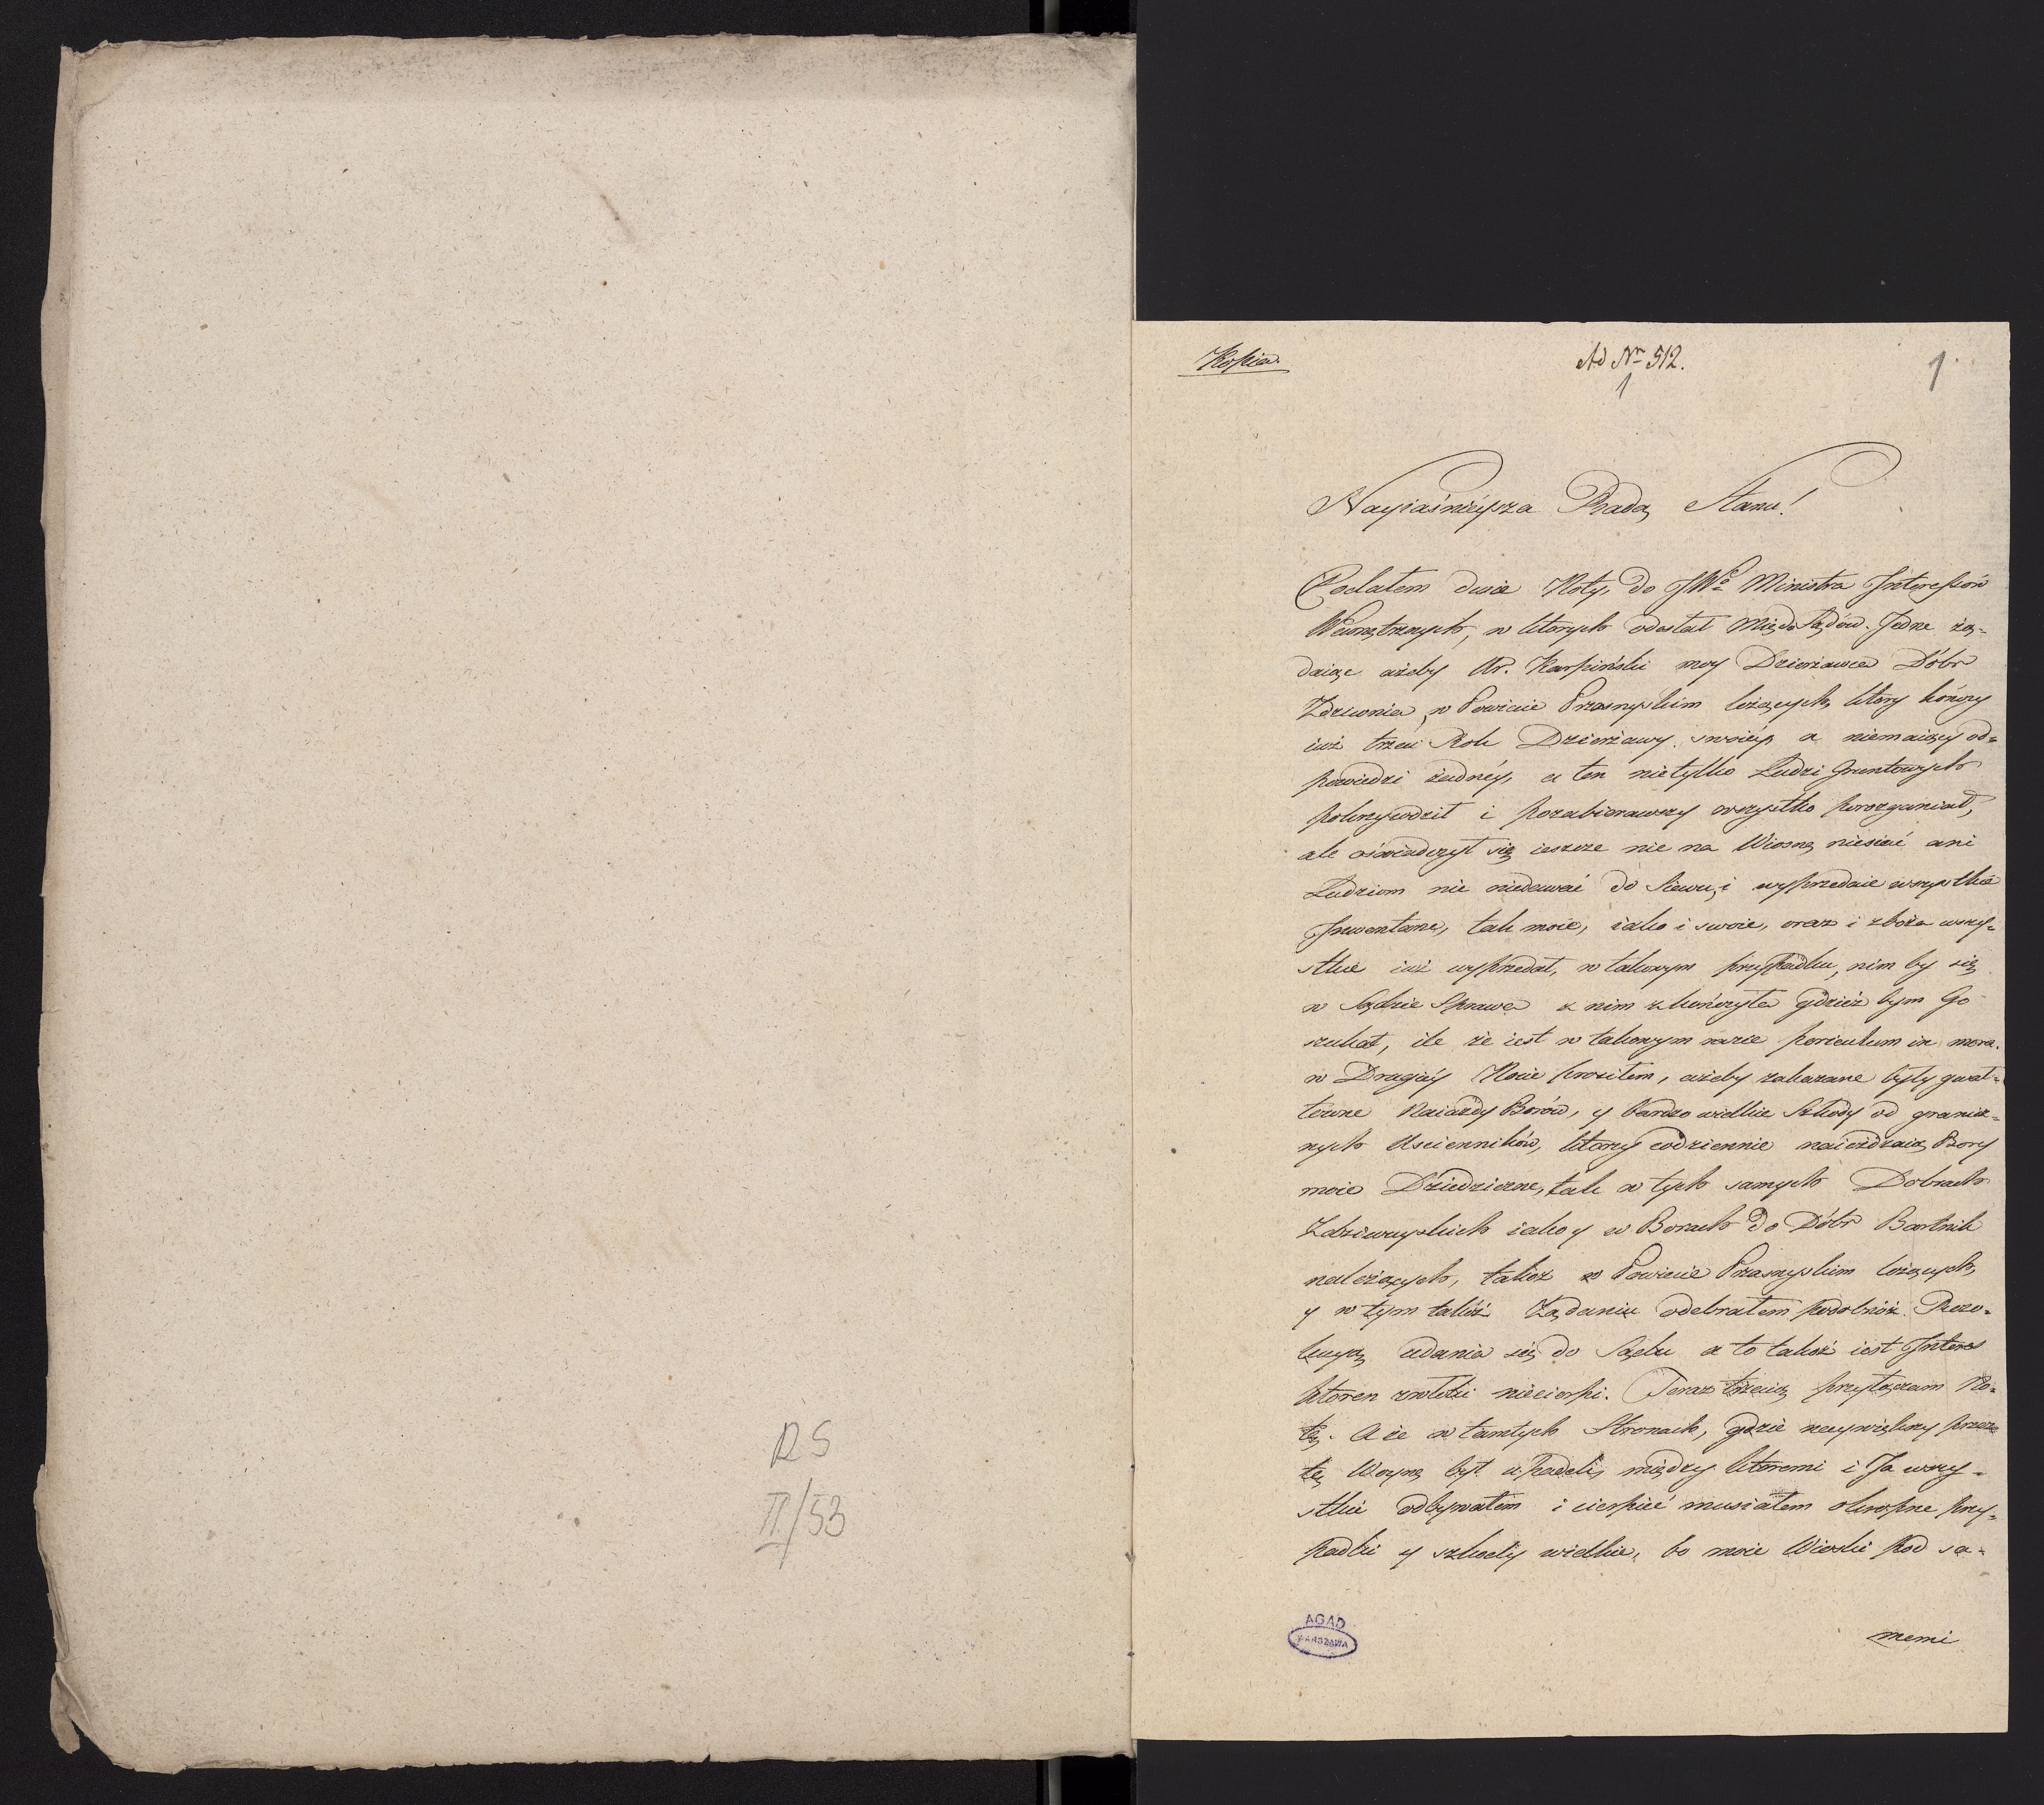 RS
II/53
Kopia.
Ad Nr 512.
1
1
Nayiaśnieysza Rado Stanu!
Podałem dwie Noty, do JWo Ministra Interessów
Wewnętrznych, w których odesłał mię do Sądów. Jedne żą-
daiąc ażeby Ur. Karpiński moy Dzierżawca Dóbr
w Powiecie Prasnyskim leżących, który kończy
iuż trzeci Rok Dzierżawy swoiéy, a niemaiący od-
powiedzi żadnéy, a ten nietylko Ludzi Gruntowych
pokrzywdził i pozabierawszy wszystko porozganiał,
ale oświadczył się ieszcze nic na Wiosnę niesiać ani
Ludziom nic niedawać do Siewu, i wyprzedaie wszystkie
Inwentarze, tak moie, iako i swoie, oraz i zboża wszy-
stkie iuż wyprzedał, w takowym przypadku, nim by się
w Sądzie Sprawa z nim zkończyła gdzież bym Go
szukał, ile że iest w takowym razie periculum in mora.
w Drugiéy Nocie prosiłem, ażeby zakazane były gwał-
towne Naiazdy Borów, y bardzo wielkie Szkody od granicz-
nych Usciennikòw, którzy codziennie naieżdzaią Bory
moie Dziedziczne, tak w tych samych Dobrach
iako y w Borach do Dóbr Bartnik
należących, także w Powiecie Prasnyskim leżących,
y w tym także Żądaniu odebrałem podobnéż Rezo-
lucyą udania się do Sądu a to także iest Interes
ktoren zwłoki niecierpi. Teraz trzecią przyłączam No-
tę. A że w tamtych Stronach, gdzie naywiększy przez
tę Woynę był między któremi i Ja wszy-
stkie odbywałem i cierpieć musiałem okropne przy-
padki y szkody wielkie, bo moie Wioski pod sa-
memi
AGAD
WARSZAWA